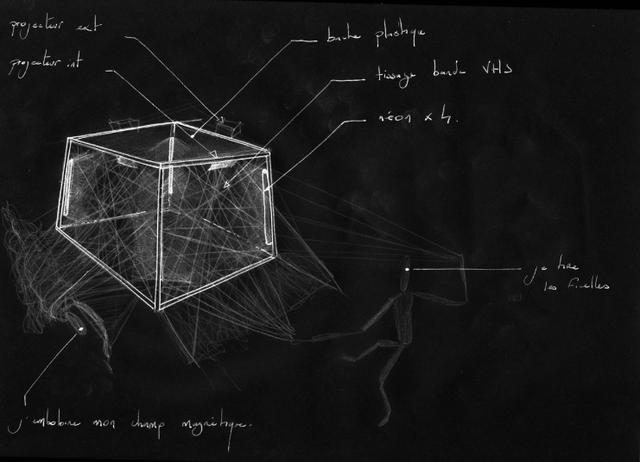 projecteur ext
projecteur int
bache plastique
tissage bande VHS
néon x 4.
je tire
les ficelles
j'embobine mon champ magnétique.